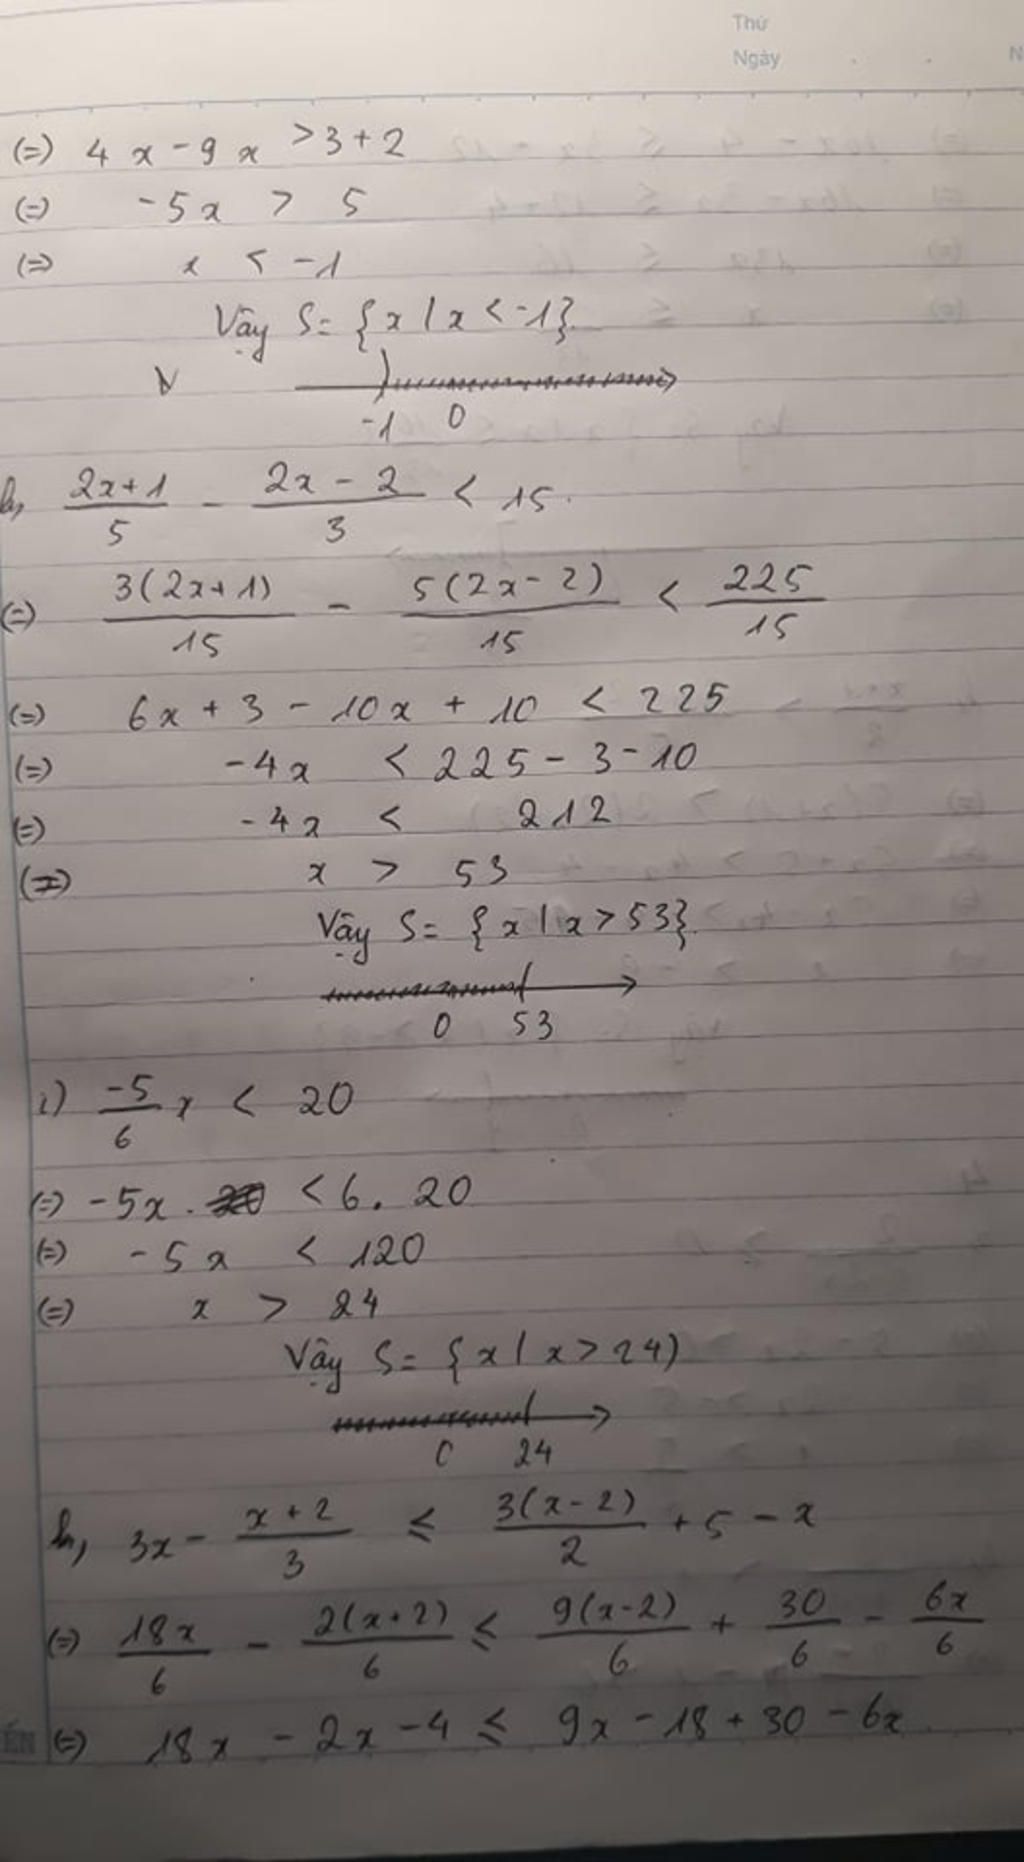 Thứ
Ngày
(=) 4x - 9x > 3 + 2
(=) -5x > 5
(=) x < -1
Vậy S = {x | x < -1}
-1 0
h, 2x+1/5 - 2x-2/3 < 15.
(=) 3(2x+1)/15 - 5(2x-2)/15 < 225/15
(=) 6x + 3 - 10x + 10 < 225
(=) -4x < 225 - 3 - 10
(=) -4x < 212
(=) x > 53
Vậy S = {x | x > 53}
0 53
i) -5/6 x < 20
(=) -5x . < 6 . 20
(=) -5x < 120
(=) x > 24
Vậy S = {x | x > 24)
0 24
h, 3x - x+2/3 ≤ 3(x-2)/2 + 5 - x
(=) 18x/6 - 2(x+2)/6 ≤ 9(x-2)/6 + 30/6 - 6x/6
(=) 18x - 2x - 4 ≤ 9x - 18 + 30 - 6x